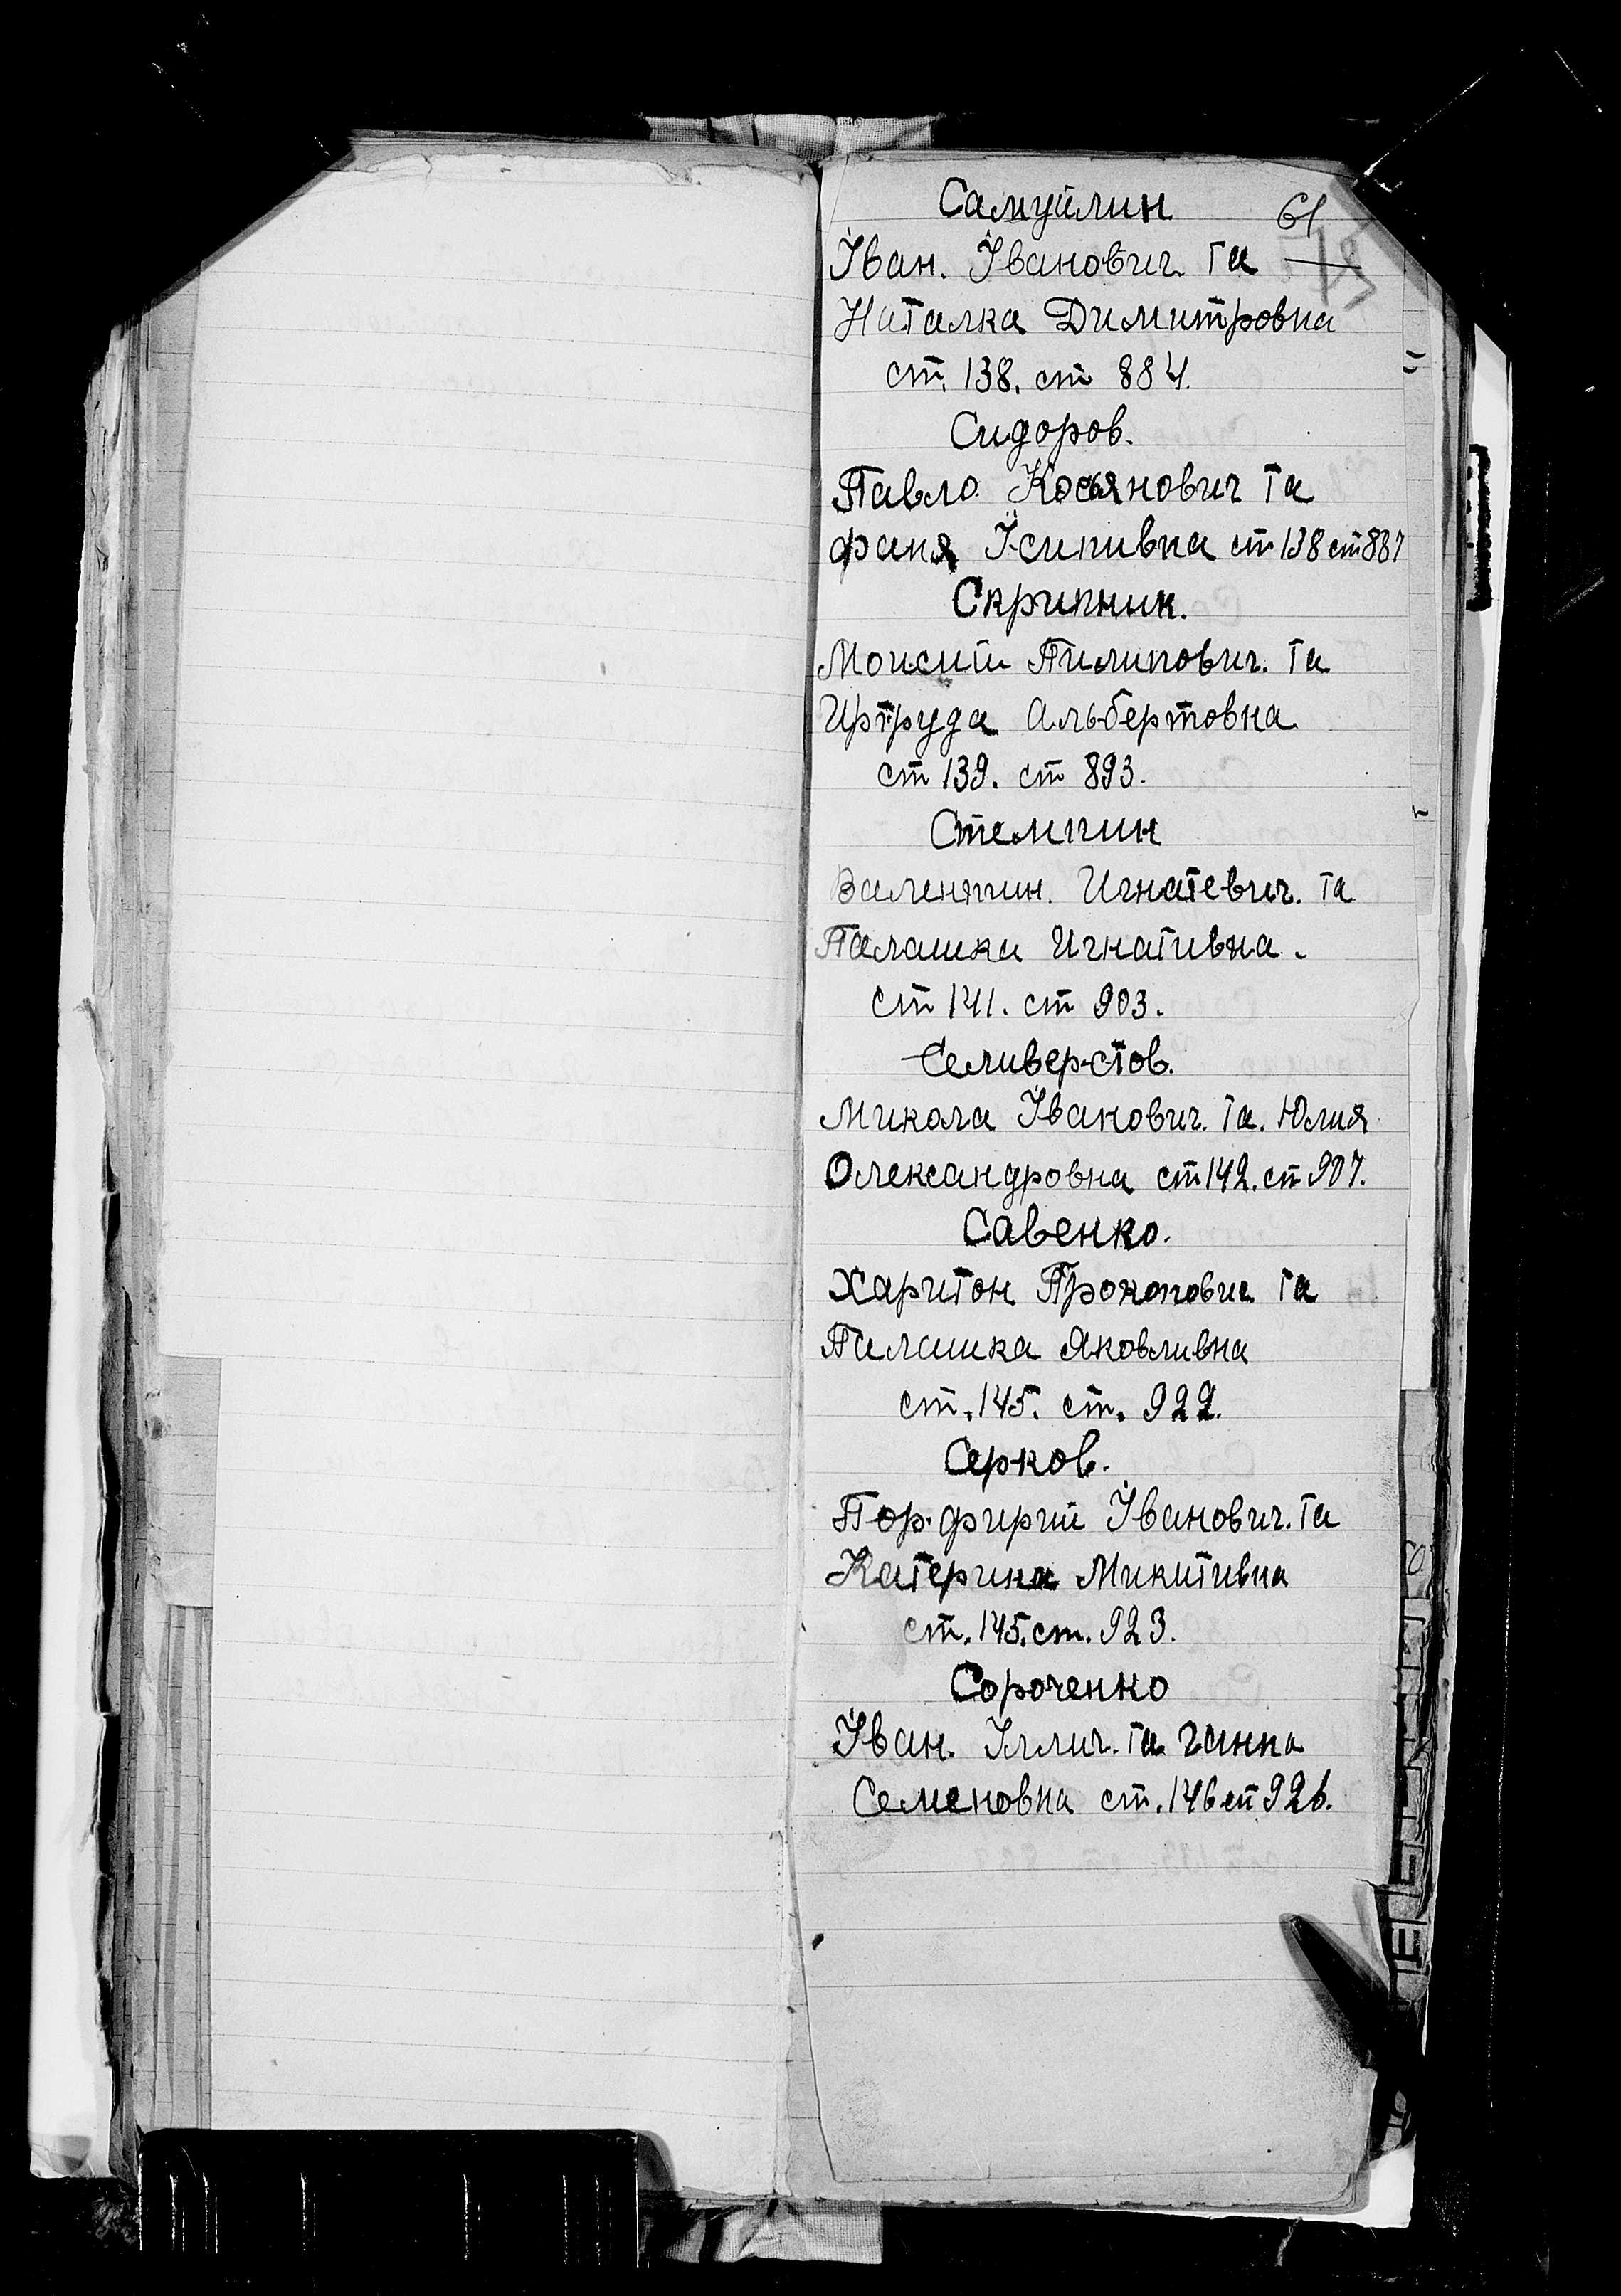 Самуйлин 61
Іван. Іванович. та
Наталка Димитровна
ст. 138. ст 884.
Сидоров.
Павло Косьянович та
Фаня Їсипивна ст 138 ст 887
Скрипник.
Моисий Пилипович. та
Иртруда Альбертовна
ст 139. ст 893.
Стемпин
Валентин. Игнатевич. та
Палашка Игнативна.
ст 141. ст 903.
Селиверстов.
Микола Іванович. та. Юлия
Олександровна ст 142. ст 907.
Савенко.
Харитон Прокопович та
Палашка Яковливна
ст. 145. ст. 922.
Серков.
Порфирий Іванович. та
Катерина Микитивна
ст. 145. ст. 923.
Сороченко
Іван. Іллич. та Ганна
Семеновна ст. 146 ст 926.